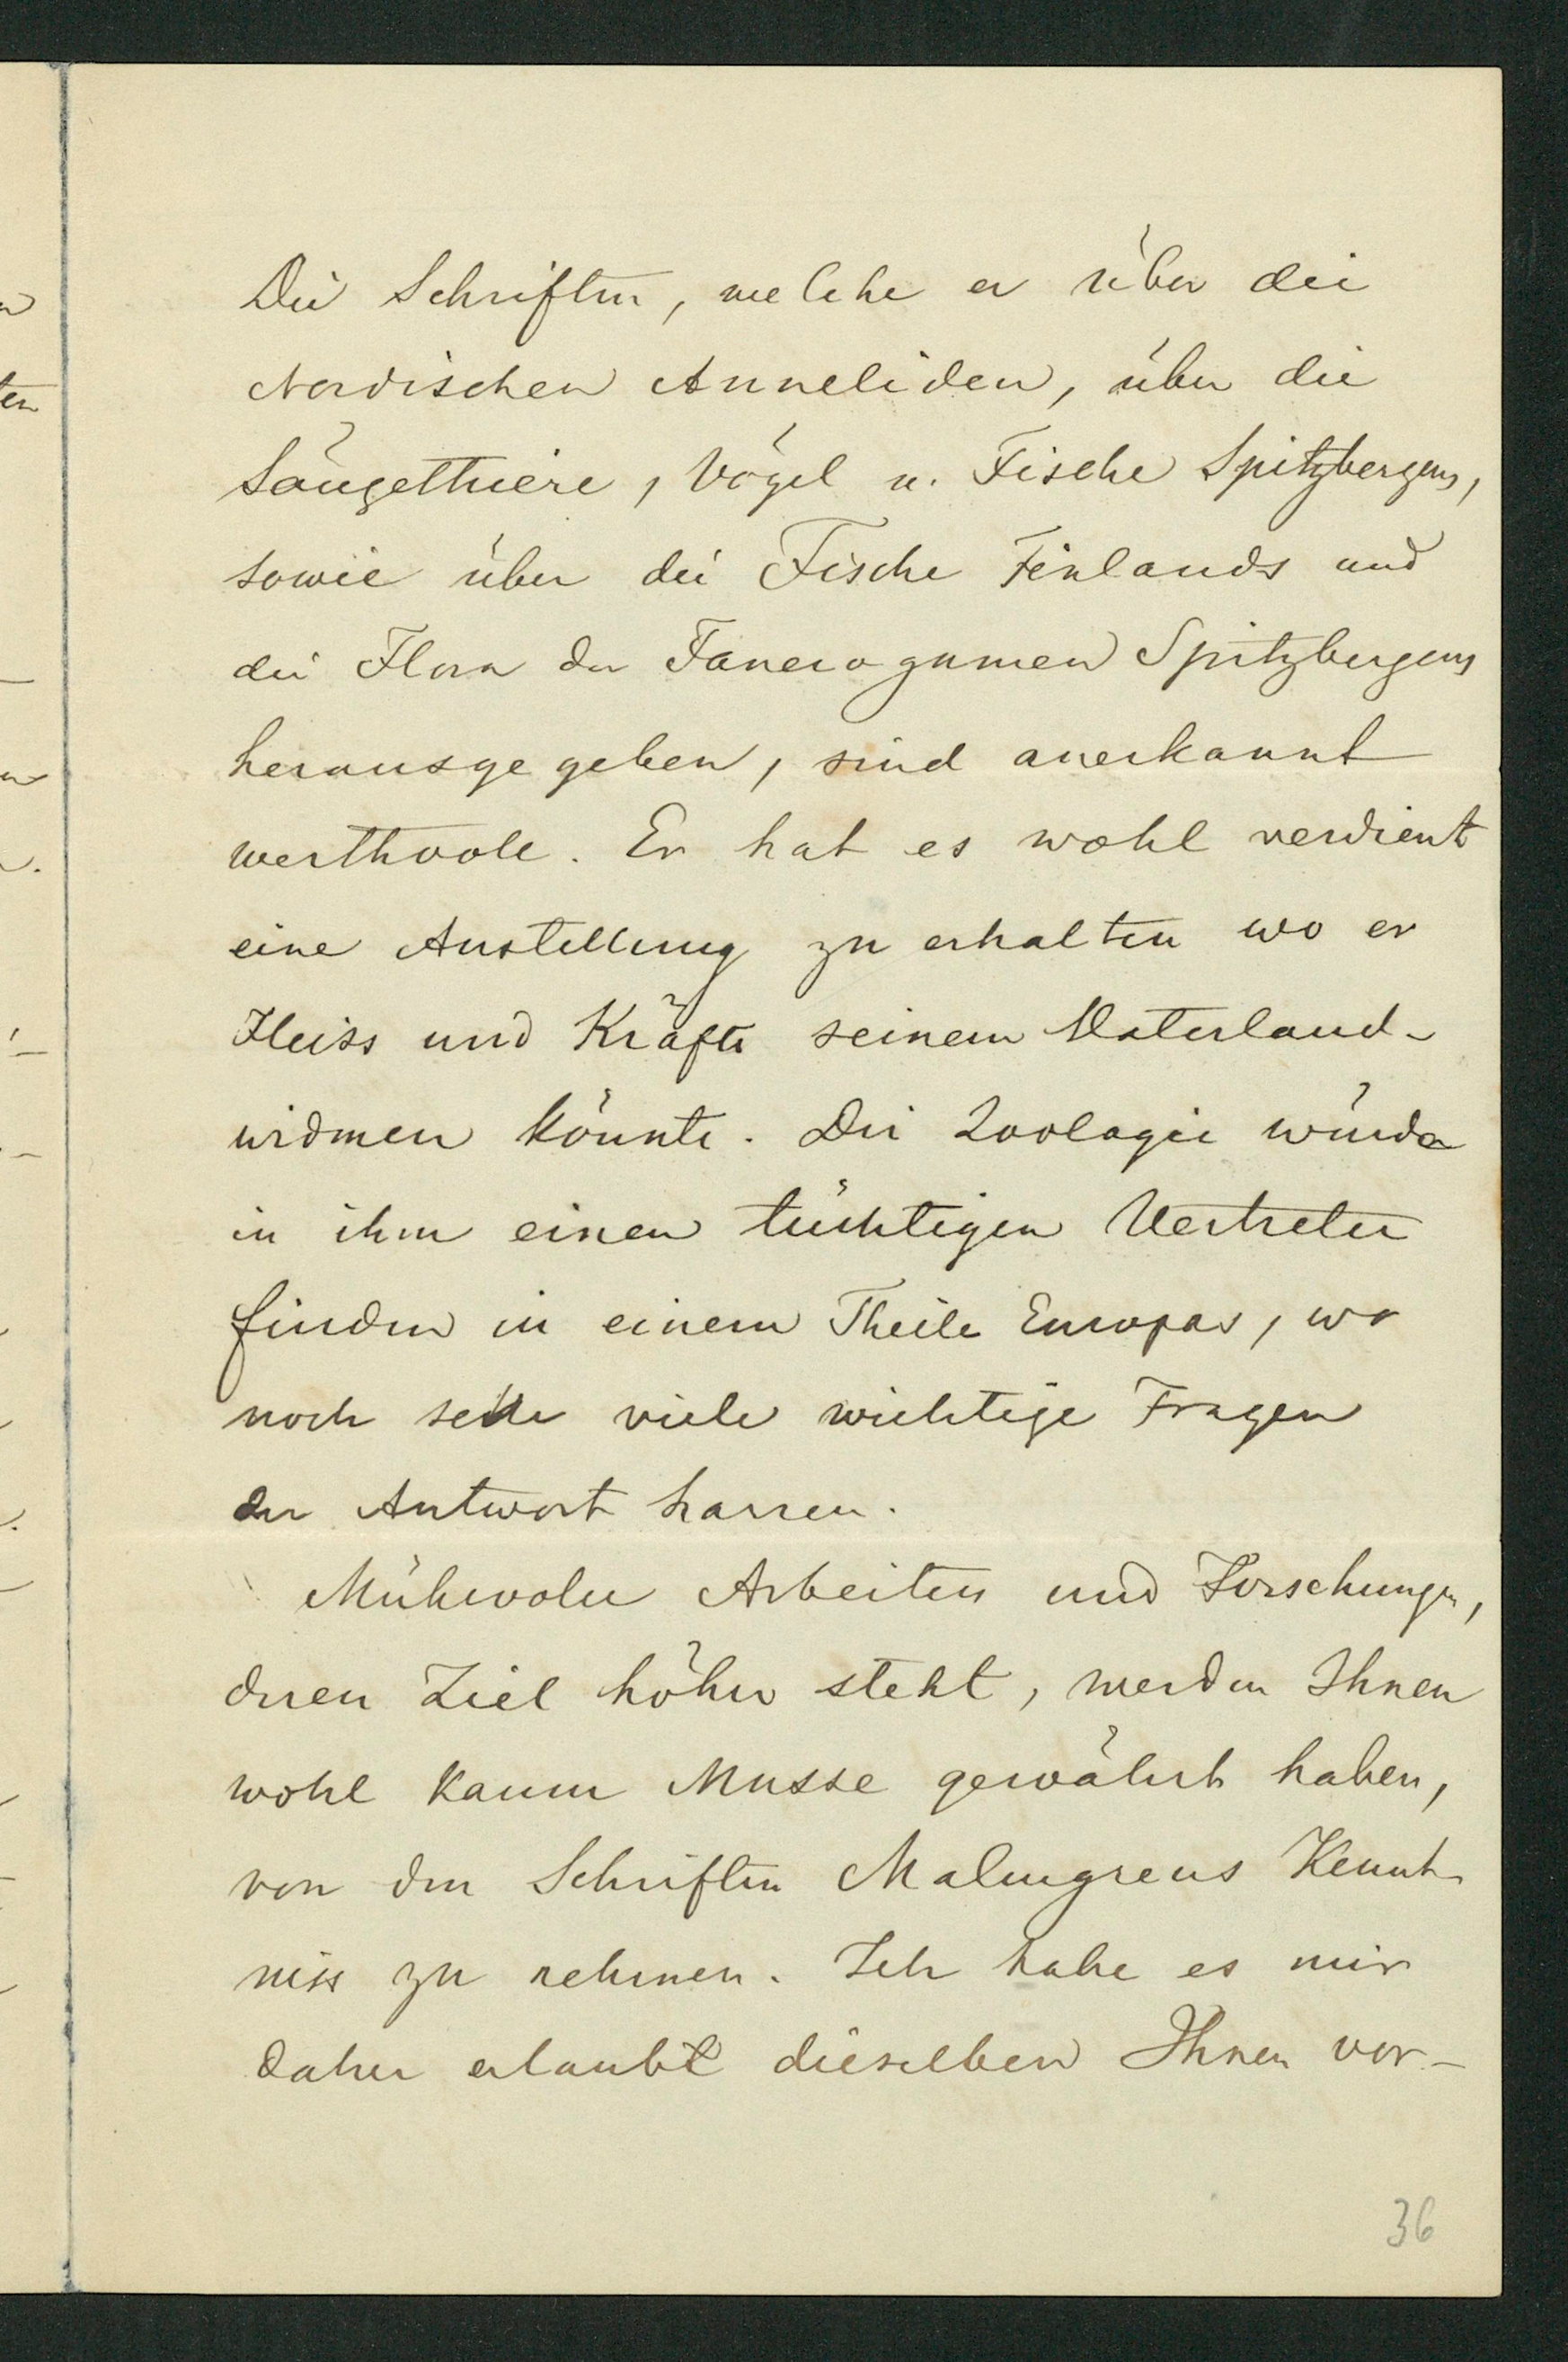 Die Schriften, welche er über die
Nordischen Anneliden, über die
Säugethiere, Vögel u. Fische Spitzbergens,
sowie über die Fische Finlands und
die Flora der Fanerogamen Spitzbergens
herausgegeben, sind anerkannt
werthvole. Er hat es wohl verdient
eine Anstellung zu erhalten wo er
Fleiss und Kräfte seinem Vaterland-
widmen könnte. Die Zoologie würde
in ihm einen tüchtigen Vertreter
finden in einem Theile Europas, wo
noch sehr viele wichtige Fragen
der Antwort harren.
Mühevolle Arbeiten und Forschungen,
deren Ziel höher steht, werden Ihnen
wohl kaum Musse gewährt haben,
von den Schriften Malmgrens Kennt-
niss zu nehmen. Ich habe es mir
daher erlaubt dieselben Ihnen vor-
36